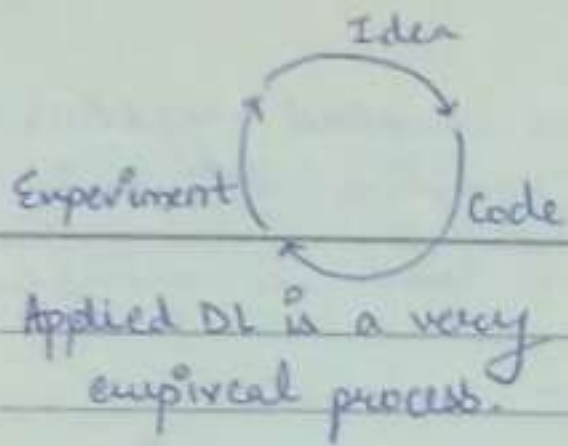 Idea
Experiment
Code
Applied DL is a very
empircal process.